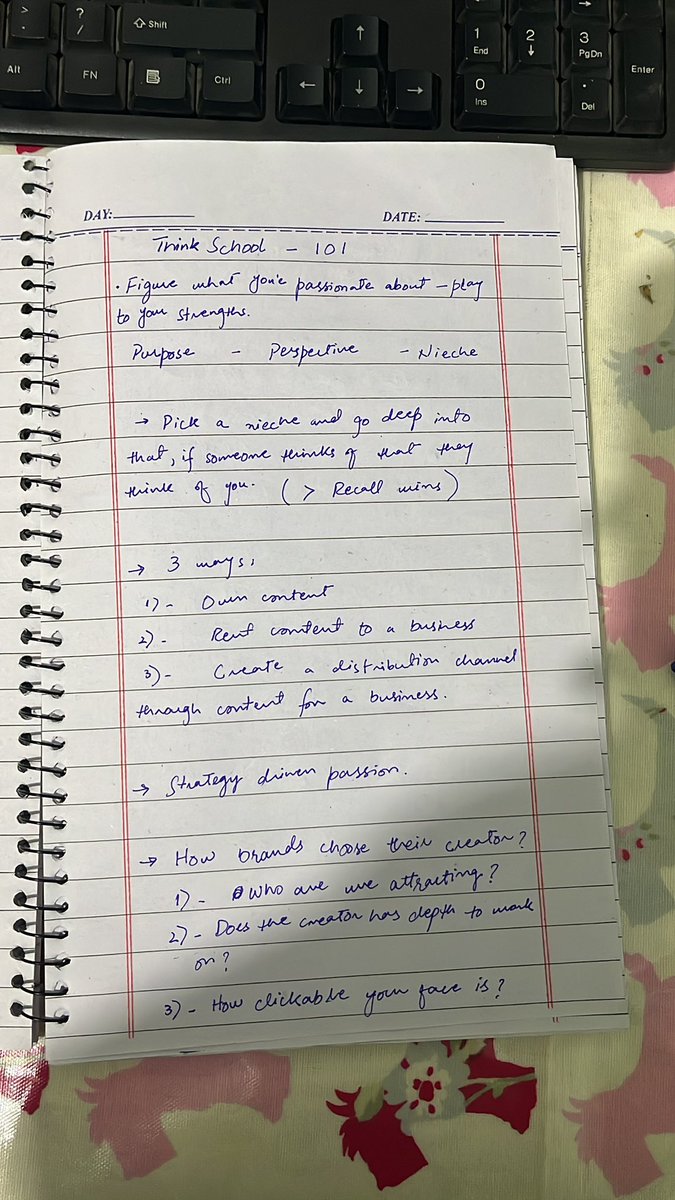 > .
? /
⇧ Shift
↑
1 End
2 ↓
3 PgDn
Alt
FN
Ctrl
←
↓
→
0 Ins
. Del
Enter
DAY:
DATE:
Think School - 101
· Figure what you're passionate about - play
to your strengths.
Purpose - Perspective - Nieche
→ Pick a nieche and go deep into
that, if someone thinks of that they
think of you. (> Recall wins)
→ 3 ways,
1) - Own content
2) - Rent content to a business
3) - Create a distribution channel
through content for a business.
→ Strategy driven passion.
→ How brands choose their creator?
1) - Who are we attracting?
2) - Does the creator has depth to work
on?
3) - How clickable your face is?